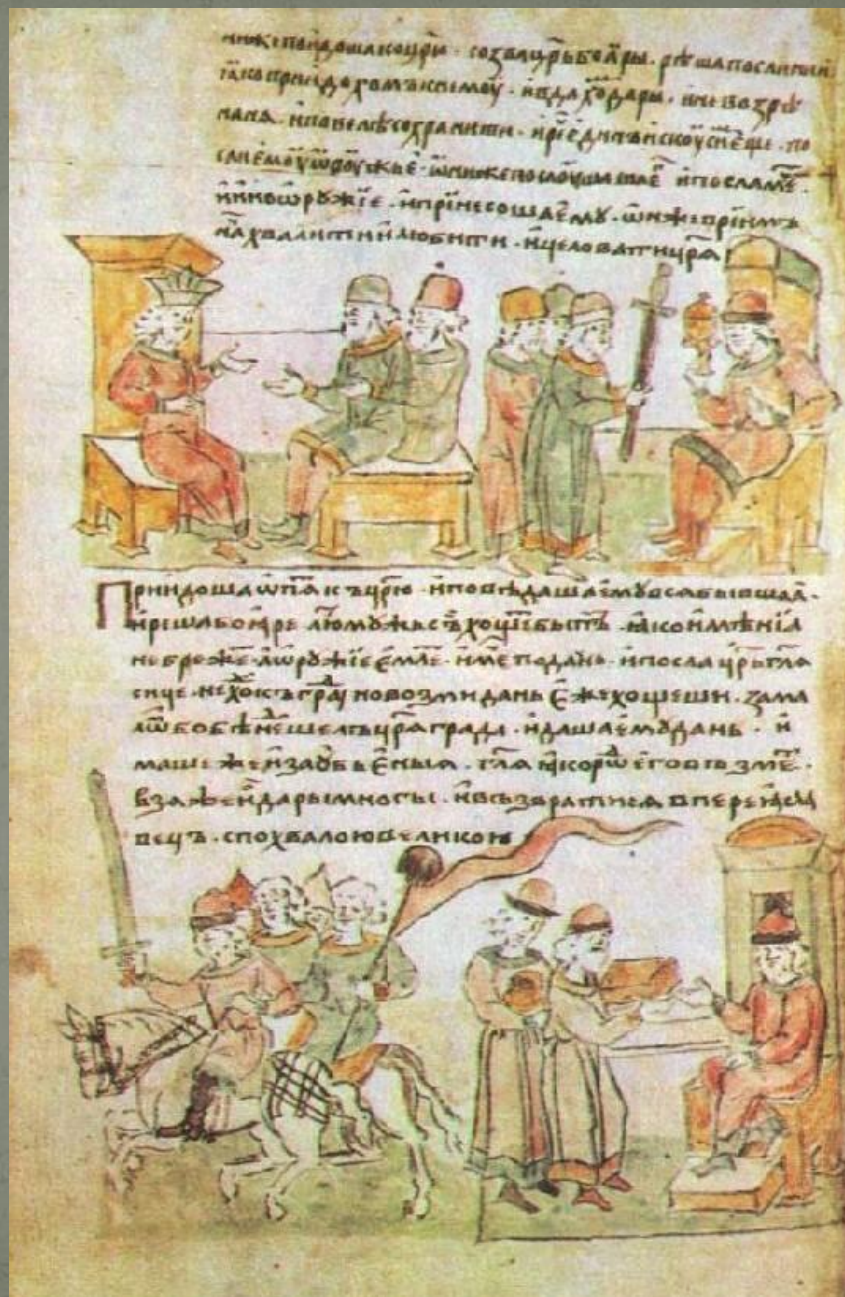 ниже поидоша ко цр҃ю · созва цр҃ь боꙗры · рѣша послании
ꙗко приидохомъ к немоу · и вдахо̑ дары · и не возрѣ
на нѧ · и повелѣ сохранити · и рⷱ҇е единъ искоуси и еще · по
сли емоу ѡроужье · ѡни же послоушаша е҃ и послаша
и ино ѡружїе · и принесоша ему · ѡн же приимъ
нача хвалити и любити · и целовати цр҃ѧ
Приидоша ѡпѧ къ цр҃ю · и повѣдаша ему всѧ бывшаꙗ ·
и реша боꙗре лю мужь съ хощеⷮ быти · ꙗко имѣнїа
не брежеⷮ · а ѡружїе емлеⷮ · име по дань · и посла цр҃ь гл҃ѧ
сице · не хоⷣ къ граⷣу но возми дань еже хощеши · за ма
лѡ бо бѣ не шелъ цр҃ѧ града · и даша ему дань · и
маше же и за убьеныꙗ · гл҃ѧ ꙗко роⷣ его възмеⷮ ·
взѧ же и дары многы · и възвратисѧ в переꙗсла
вець · с похвалою великою